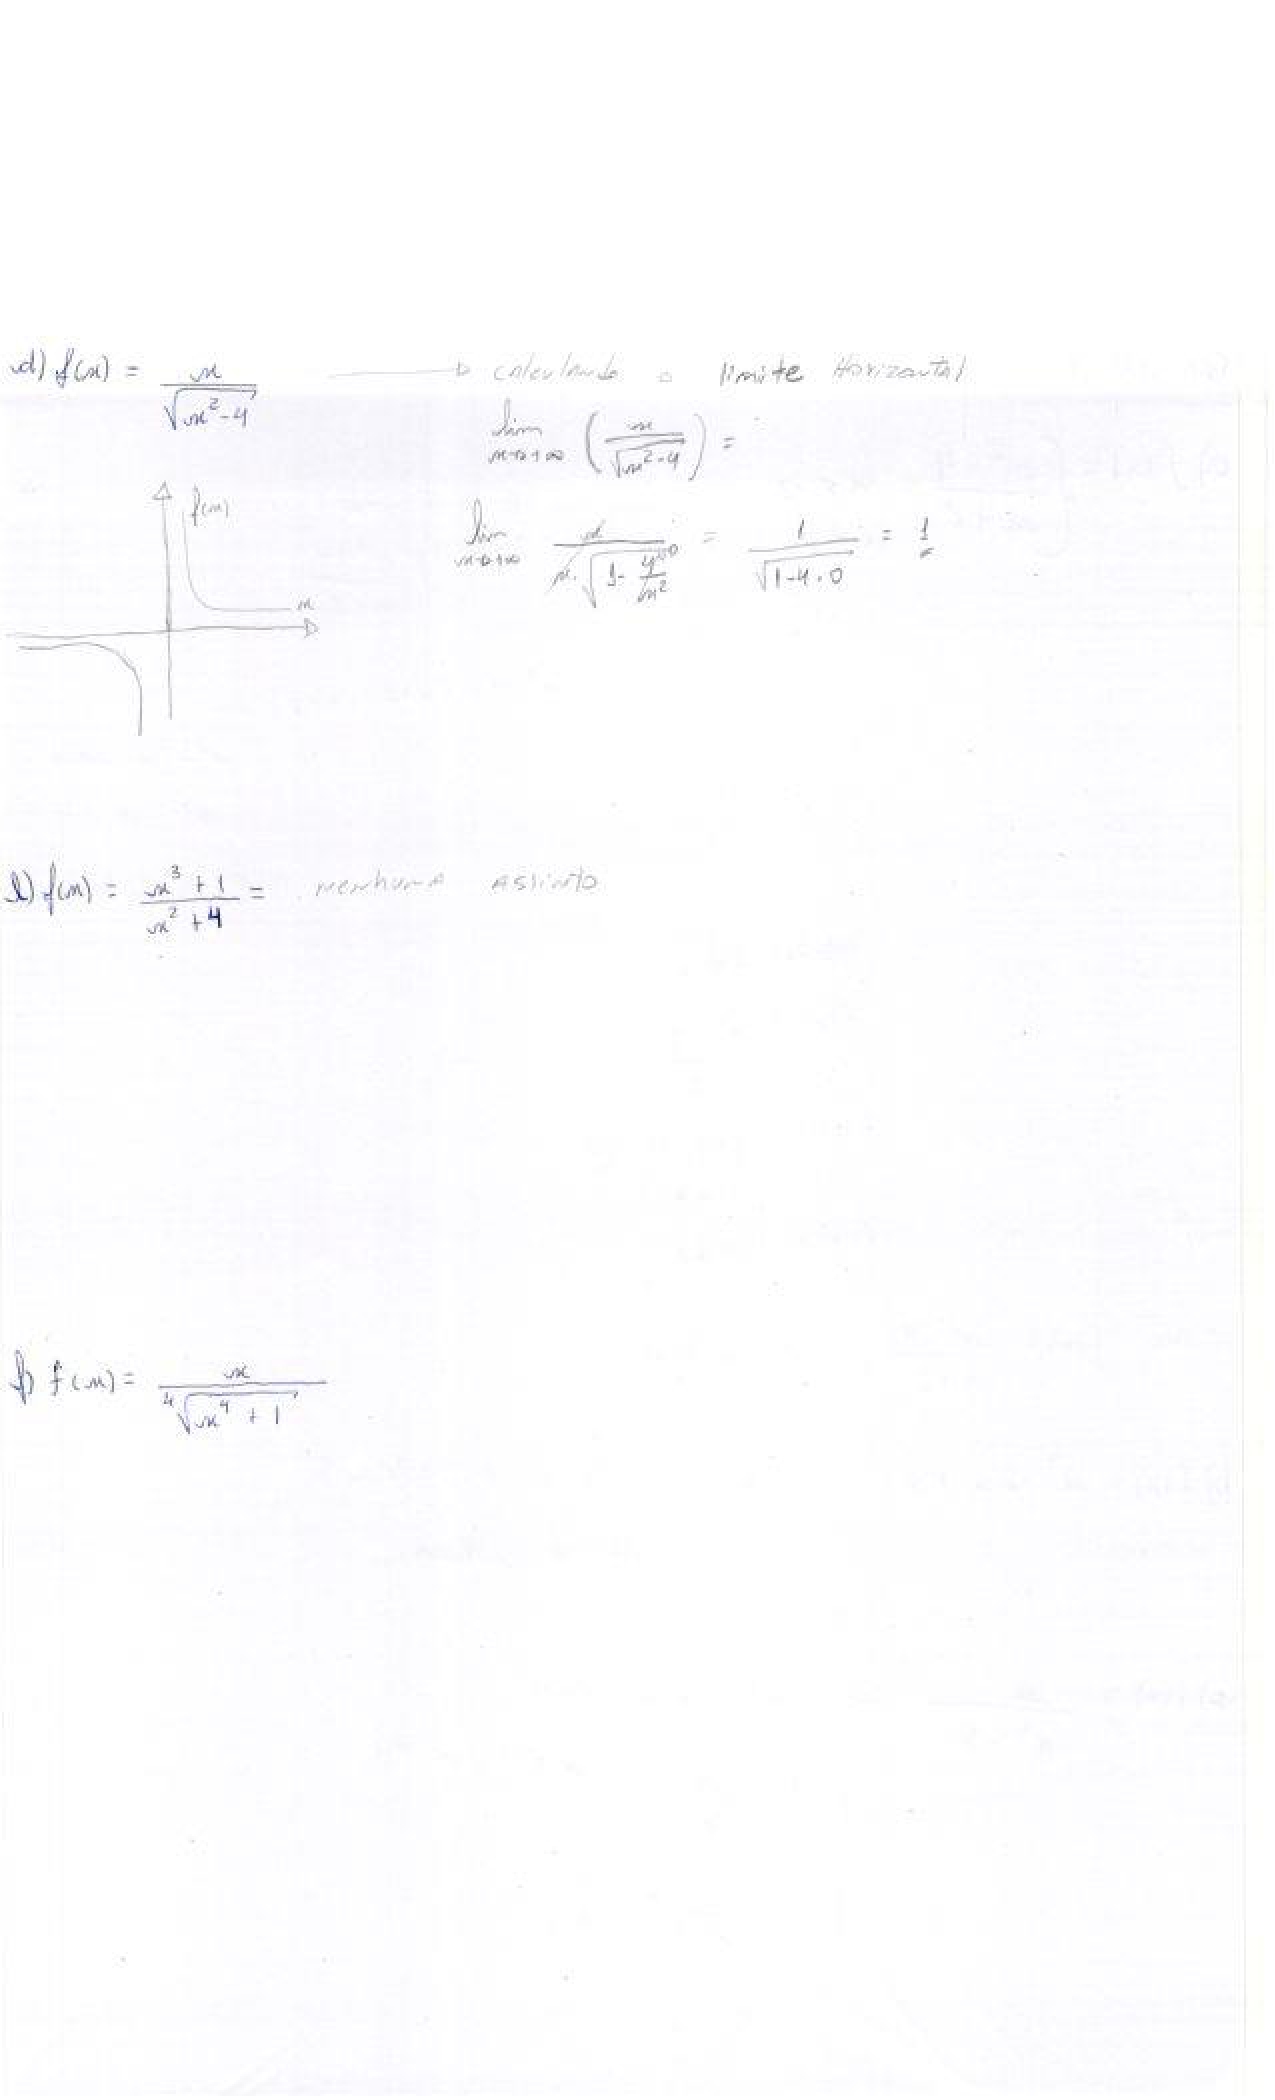 d) f(x) = x / √(x² - 4) → calculando o limite Horizontal
lim x→+∞ (x / √(x² - 4)) =
f(x)
lim x→+∞ x / (x · √(1 - 4/x²)) = 1 / √(1 - 4 · 0) = 1
x
e) f(x) = (x³ + 1) / (x² + 4) = nenhuma assinto
f) f(x) = x / ⁴√(x⁴ + 1)